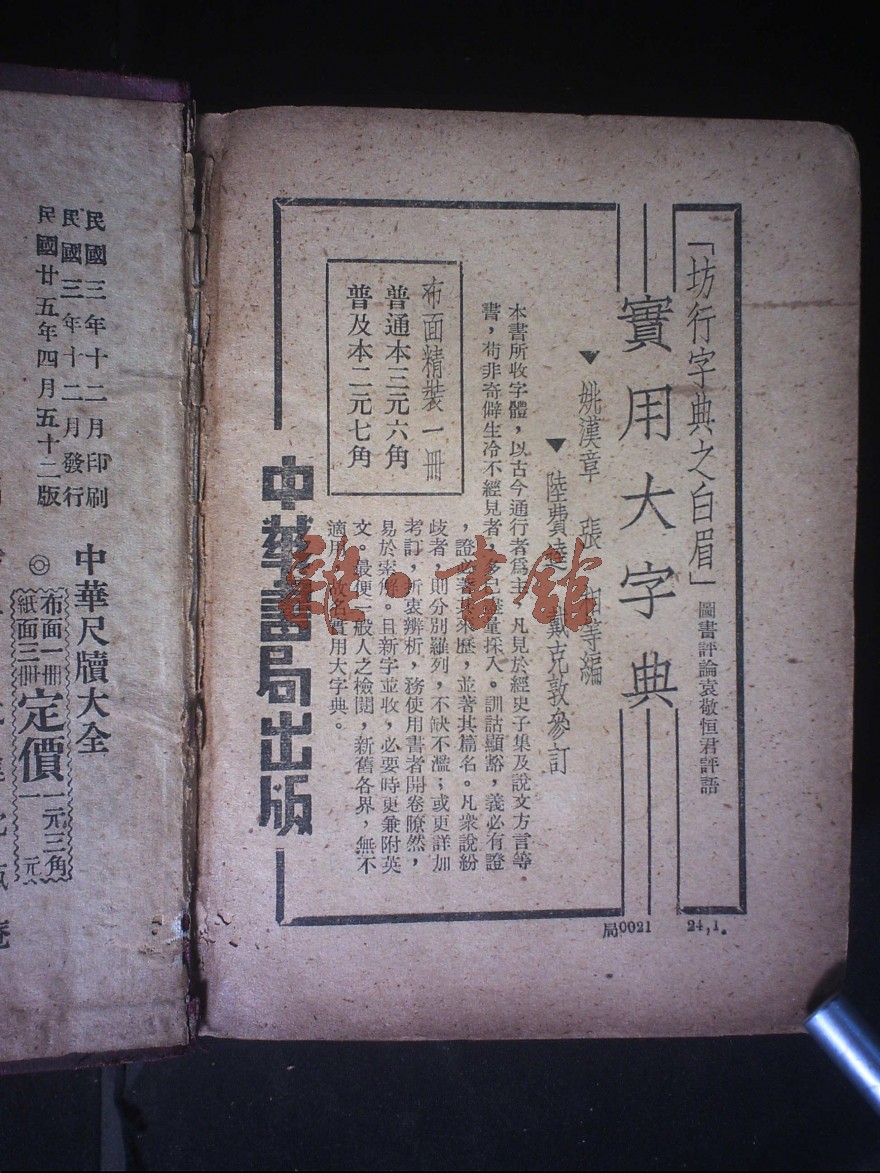 「坊行字典之白眉」圖書評論袁敬恒君評語
實用大字典
▼姚漢章 張相等編
▼陸費逵 戴克敦參訂
本書所收字體，以古今通行者爲主，凡見於經史子集及說文方言等
書，苟非奇僻生冷不經見者，多已儘量採入。訓詁顯豁，義必有證
，證必著其來歷，並著其篇名。凡衆說紛
歧者，則分別羅列，不缺不濫；或更詳加
考訂，折衷辨析，務使用書者開卷瞭然，
易於索解。且新字並收，必要時更兼附英
文。最便一般人之檢閱，新舊各界，無不
適用，故名實用大字典。
布面精裝一冊
普通本三元六角
普及本二元七角
中華書局出版
局0021 24,1.
雜·書館
中華尺牘大全
民國三年十二月印刷
民國三年十二月發行
民國廿五年四月五十二版
◎
布面一冊
紙面三冊
定價
一元三角
一元